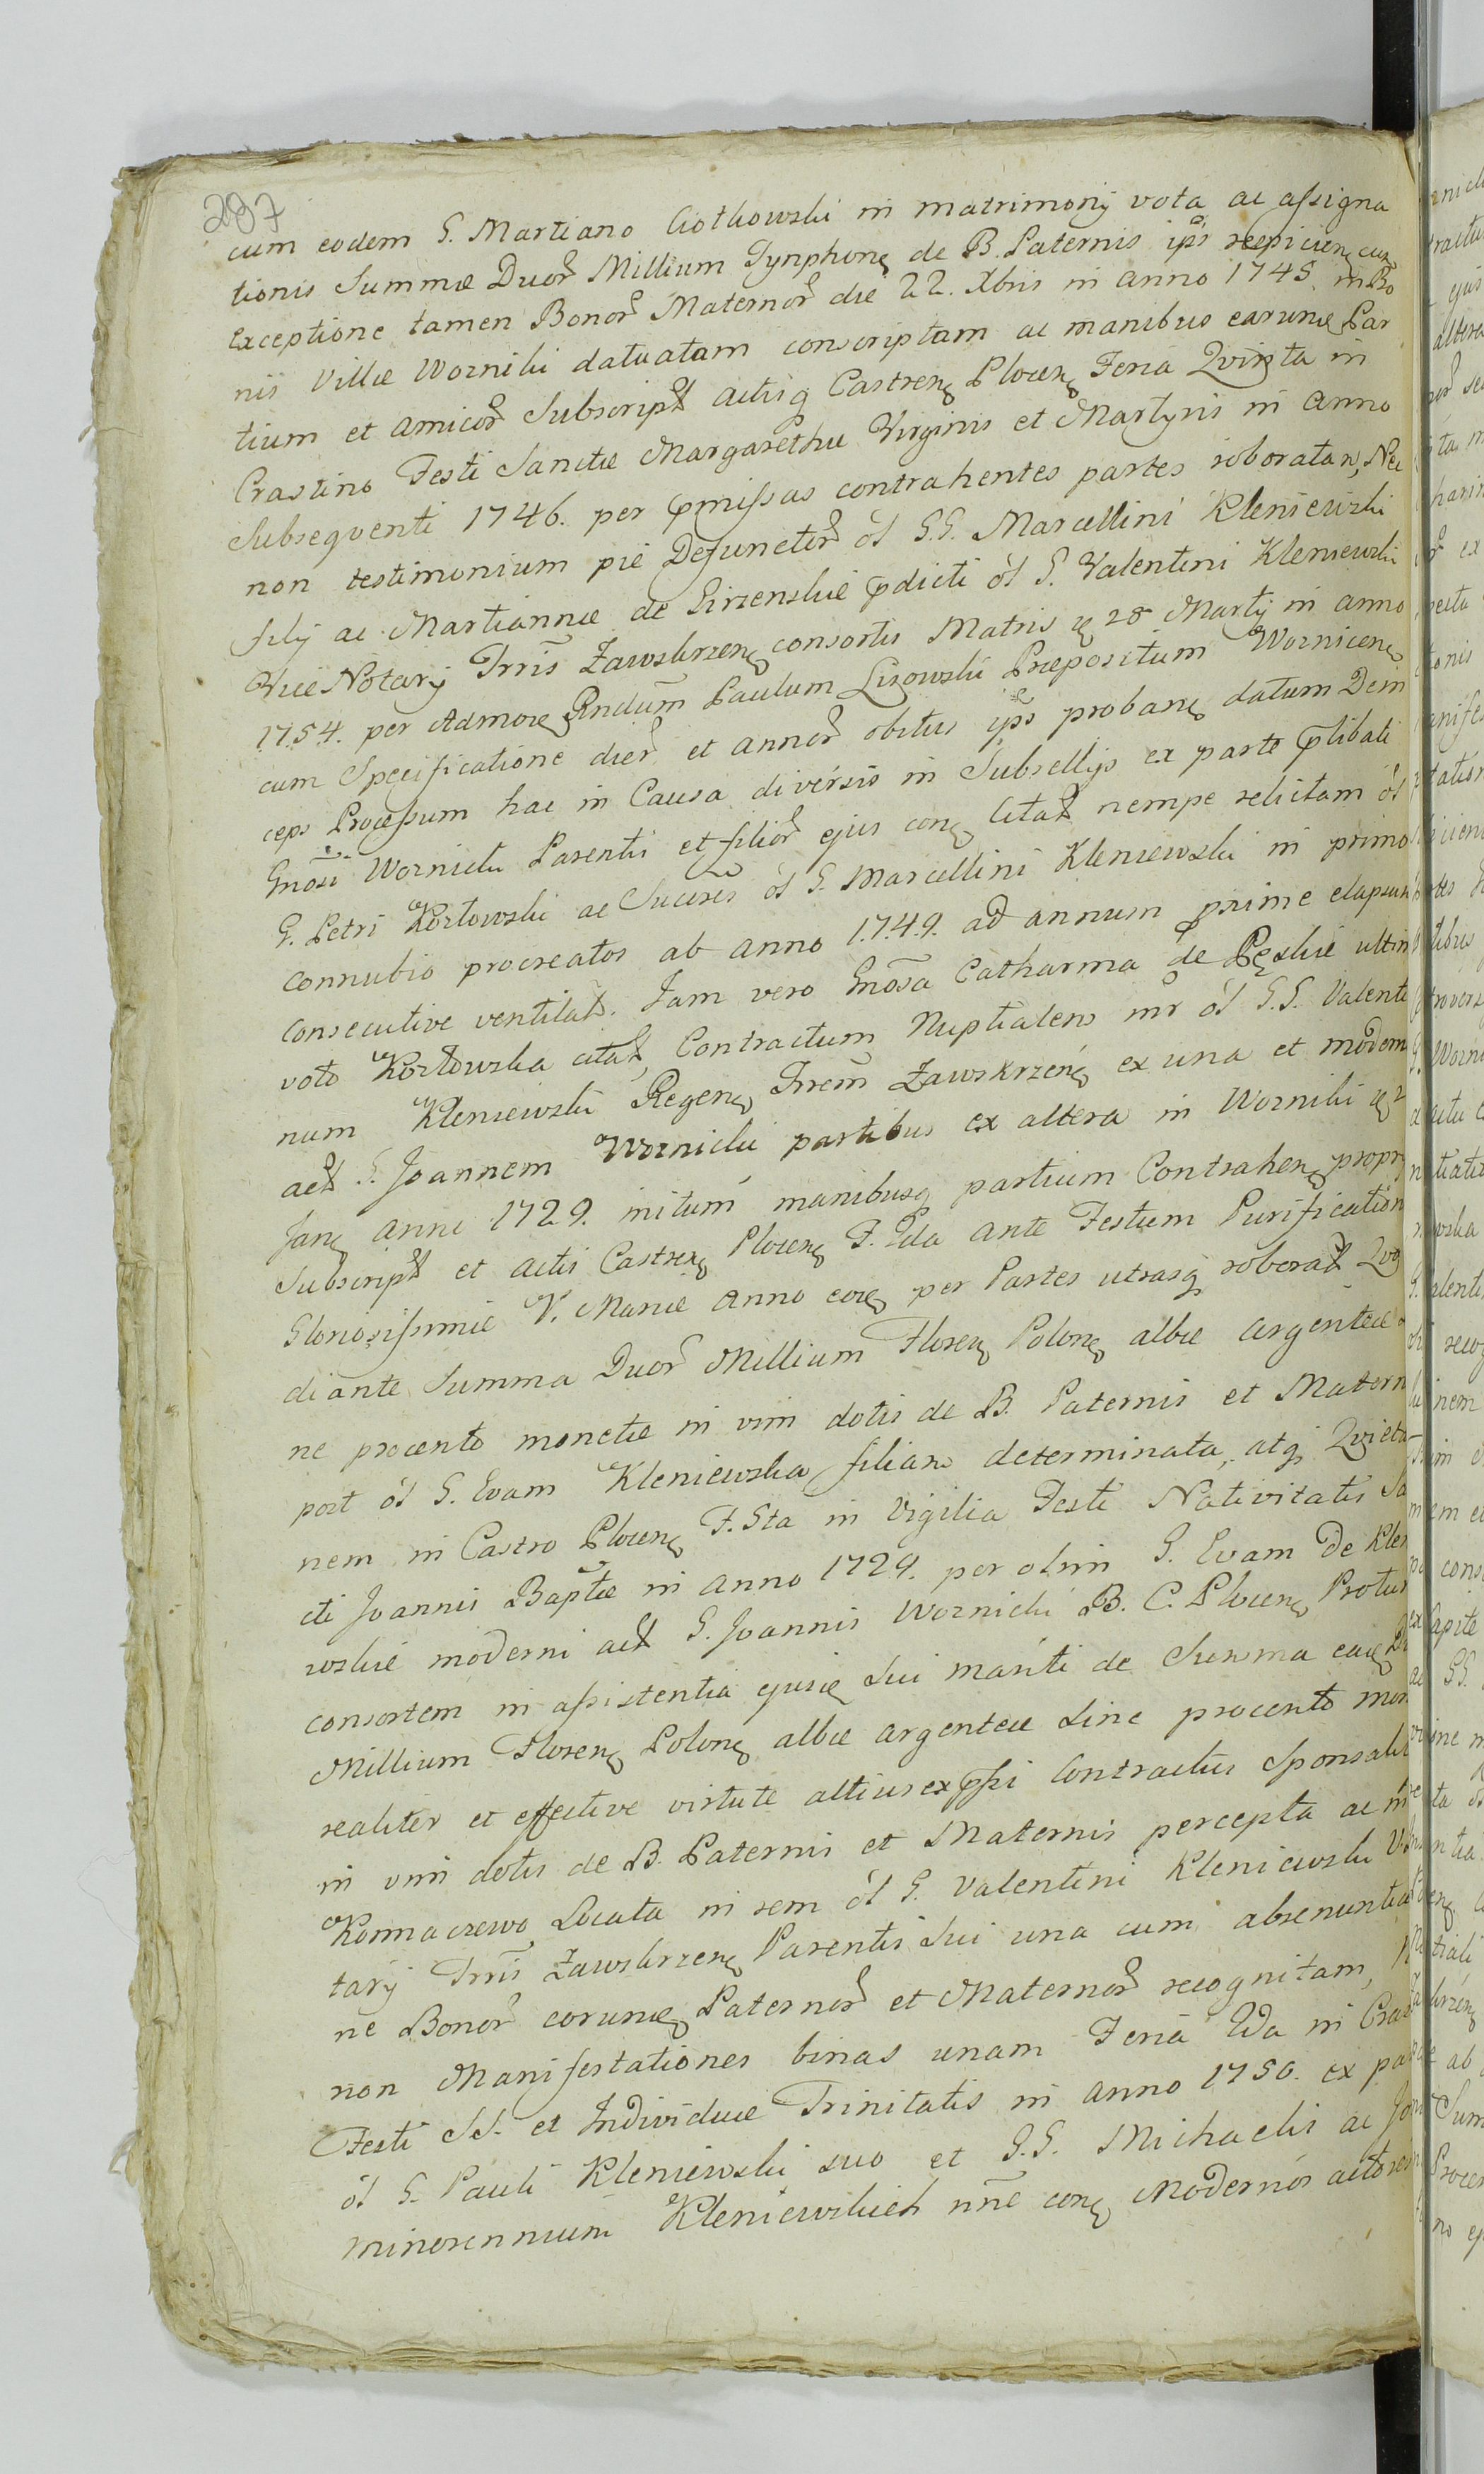 287
cum eodem G. Martiano Ciotkowski in matrimonÿ vota ac assigna
tionis Summæ Duor Millium Tynphonę de B. Paternis ips respicienę cum
exceptione tamen Bonor Maternor die 22. Xbris in anno 1745. in Bo
nis Villæ Woznilii datuatam conscriptam ac manibus earumę Par
tium et amicor Subscript actisq Castrenę Plocenę Feria Qvinta in
Crastino Festi Sanctæ Margarethæ Virginis et Martyris in anno
Subseqventi 1746. per pmissas contrahentes partes roboratam, Nec
non testimonium pie Defunctor ol G.G. Marcellini Kleniewski
filÿ ac Martiannæ de Girzenskie pdicti ol G. Valentini Kleniewski
Vice Notarÿ Trris Zawskrzenę consortis Matris ę 28 Martÿ in anno
1754. per Admorę Rndum Paulum Lisowski Præpositum Woznicenę
cum Specificatione dier et annor obitus ips probanę datum Dem
ceps Processum hac in Causa diversis in Subsellijs ex parte plibati
Gnosi Woznicki Parentis et filior ejus conę Citat nempe relictam ol
G. Petri Kozłowski ac Succres ol G. Marcellini Kleniewski in primo
connubio procreatos ab anno 1749. ad annum prime elapsum
consecutive ventilat. Jam vero Gnosa Catharina de Pęskie ultim
voto Kozłowska citat, Contractum Nuptialem inr ol G.G. Valenti
num Kleniewski Regenę Trrem Zawskrzenę ex una et modern
act G. Joannem Woznicki partibus ex altera in Woznilii ę 2
Janę anni 1729. initum manibusq partium Contrahenę propr
Subscript et actis Castrenę Plocenę F. 2da ante Festum Purification
Gloriosissimæ V. Mariæ anno eoę per Partes utrasq roborat Qvo
diante Summa Duor Millium Florenę Polonę albæ argenteæ
ne procento monetæ in vim dotis de B. Paternis et Matern
post ol G. Evam Kleniewska filiam determinata, atq Qvieta
nem in Castro Plocenę F. 6ta in Vigilia Festi Nativitatis Sa
cti Joannis Baptæ in anno 1729. per olim G. Evam De Klen
wskie moderni act G. Joannis Woznicki B. C. Plocenę Protus
consortem in assistentia ejusę sui mariti de Summa eaę Du
Millium Florenę Polonę albæ argenteæ sine procento mon
realiter et effective virtute altius expssi Contractus Sponsalis
in vim dotis de B. Paternis et Maternis percepta ac in
Konnaczewo Locata in rem ol G. Valentini Kleniewski Vi
tarÿ Trris Zawskrzenę Parentis sui una cum absenuntia
ne Bonor eorumę Paternor et Maternor recognitam, N
non Manifestationes binas unam Feria 2da in Cras
Festi SS. et Individuæ Trinitatis in anno 1750. ex pa
ol G. Pauli Kleniewski suo et G.G. Michaelis ac Jo
minorennium Kleniewskich nne conę Modernos actores